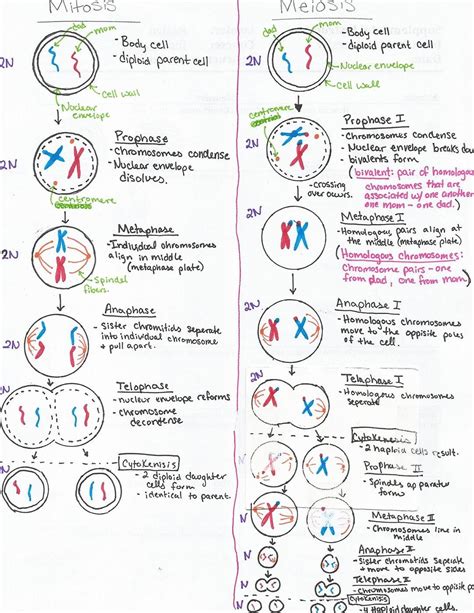 Mitosis
dad
mom
- Body cell
- diploid parent cell
2N
cell wall
Nuclear
envelope
Prophase
- chromosomes condense
- Nuclear envelope
disolves.
2N
centromere
Metaphase
- Individual chromosomes
align in middle
(metaphase plate)
2N
Spindel
fibers.
Anaphase
- Sister chromitids seperate
into individual chromosome
+ pull apart.
2N
Telophase
- nuclear envelope reforms
- chromosome
decondense
Cytokenisis
- 2 diploid daughter
cells form
- identical to parent.
N
Meiosis
dad
mom
- Body cell
- diploid parent cell
2N
Nuclear envelope
cell wall
centromere
Prophase I
- Chromosomes condense
- Nuclear envelope breaks do
- bivalents form
(bivalent: pair of homologous
chromosomes that are
associated w/ one another
one mom - one dad.)
2N
- crossing
over occurs.
Metaphase I
- Homologous pairs align at
the middle (metaphase plate)
(Homologous chromosomes:
Chromosome pairs - one
from dad, one from mom)
2N
Anaphase I
- Homologous chromosomes
move to the opposite poles
of the cell.
2N
Telaphase I
- Homologous chromosomes
seperate
2N
Cytokenisis
- 2 haploid cells result.
Prophase II
- Spindles apparatus
forms
N
Metaphase II
- Chromosomes line in
middle
N
Anaphase II
- Sister chromitids seperate
+ move to opposite sides
N
Telephase II
N
Cytokinesis
- 4 Haploid daughter cells